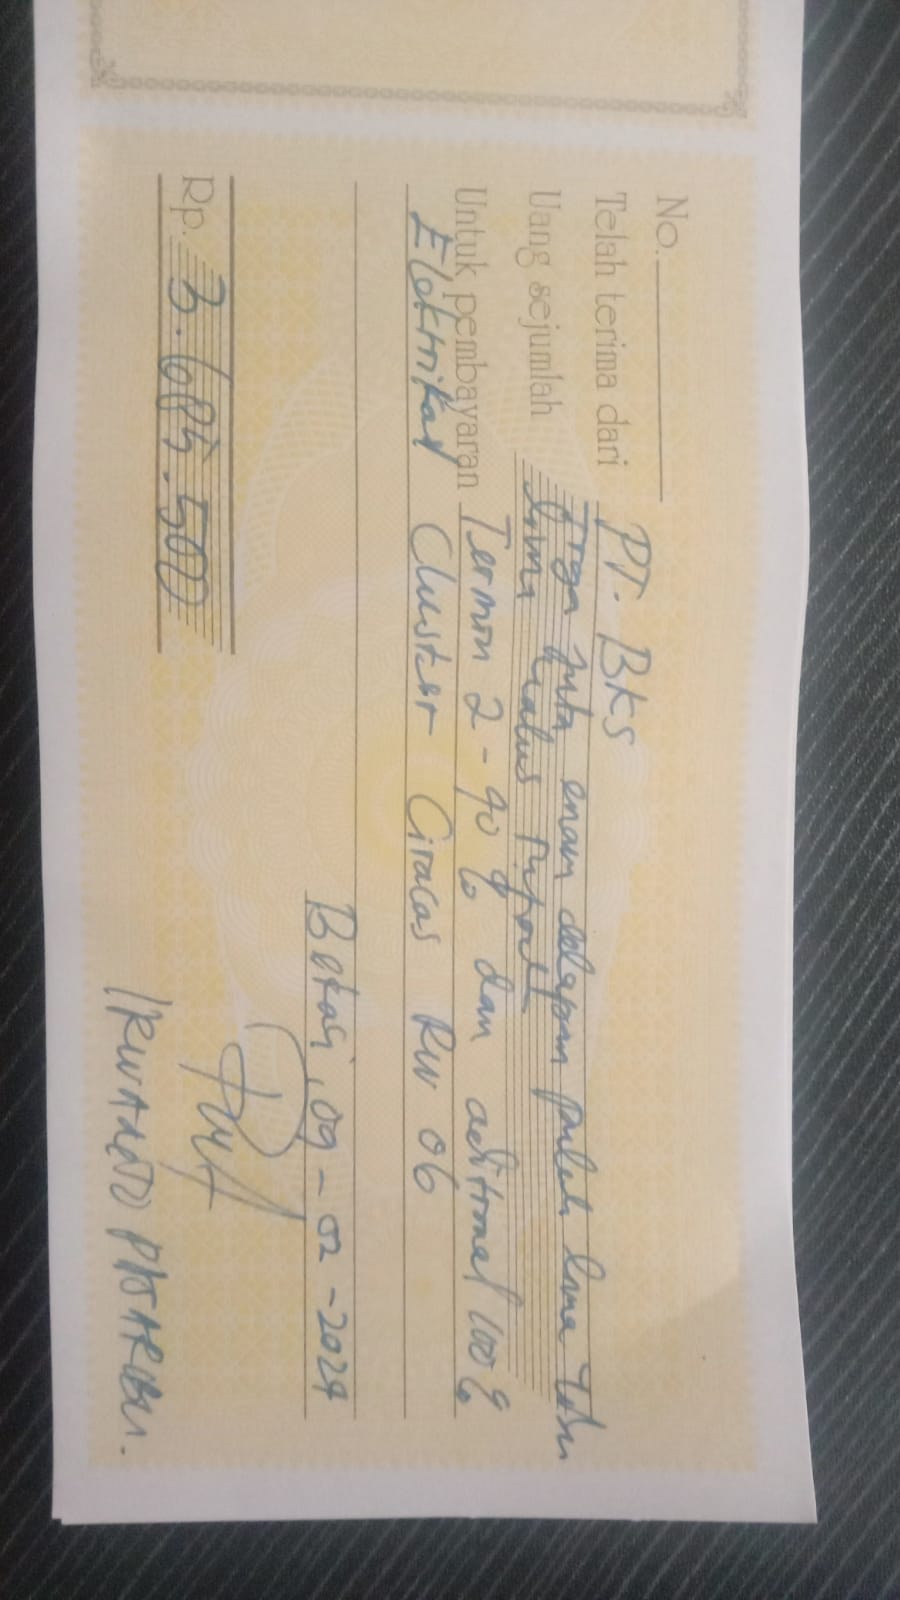 No.
Telah terima dari PT. BKS
Uang sejumlah Tiga juta enam delapan puluh lima ribu
lima ratus rupiah
Untuk pembayaran Termin 2 - 90 % dan aditional 100 %
Elektrikal Cluster Ciracas RW 06
Bekasi, 09 - 02 - 2024
Rp. 3.685.500